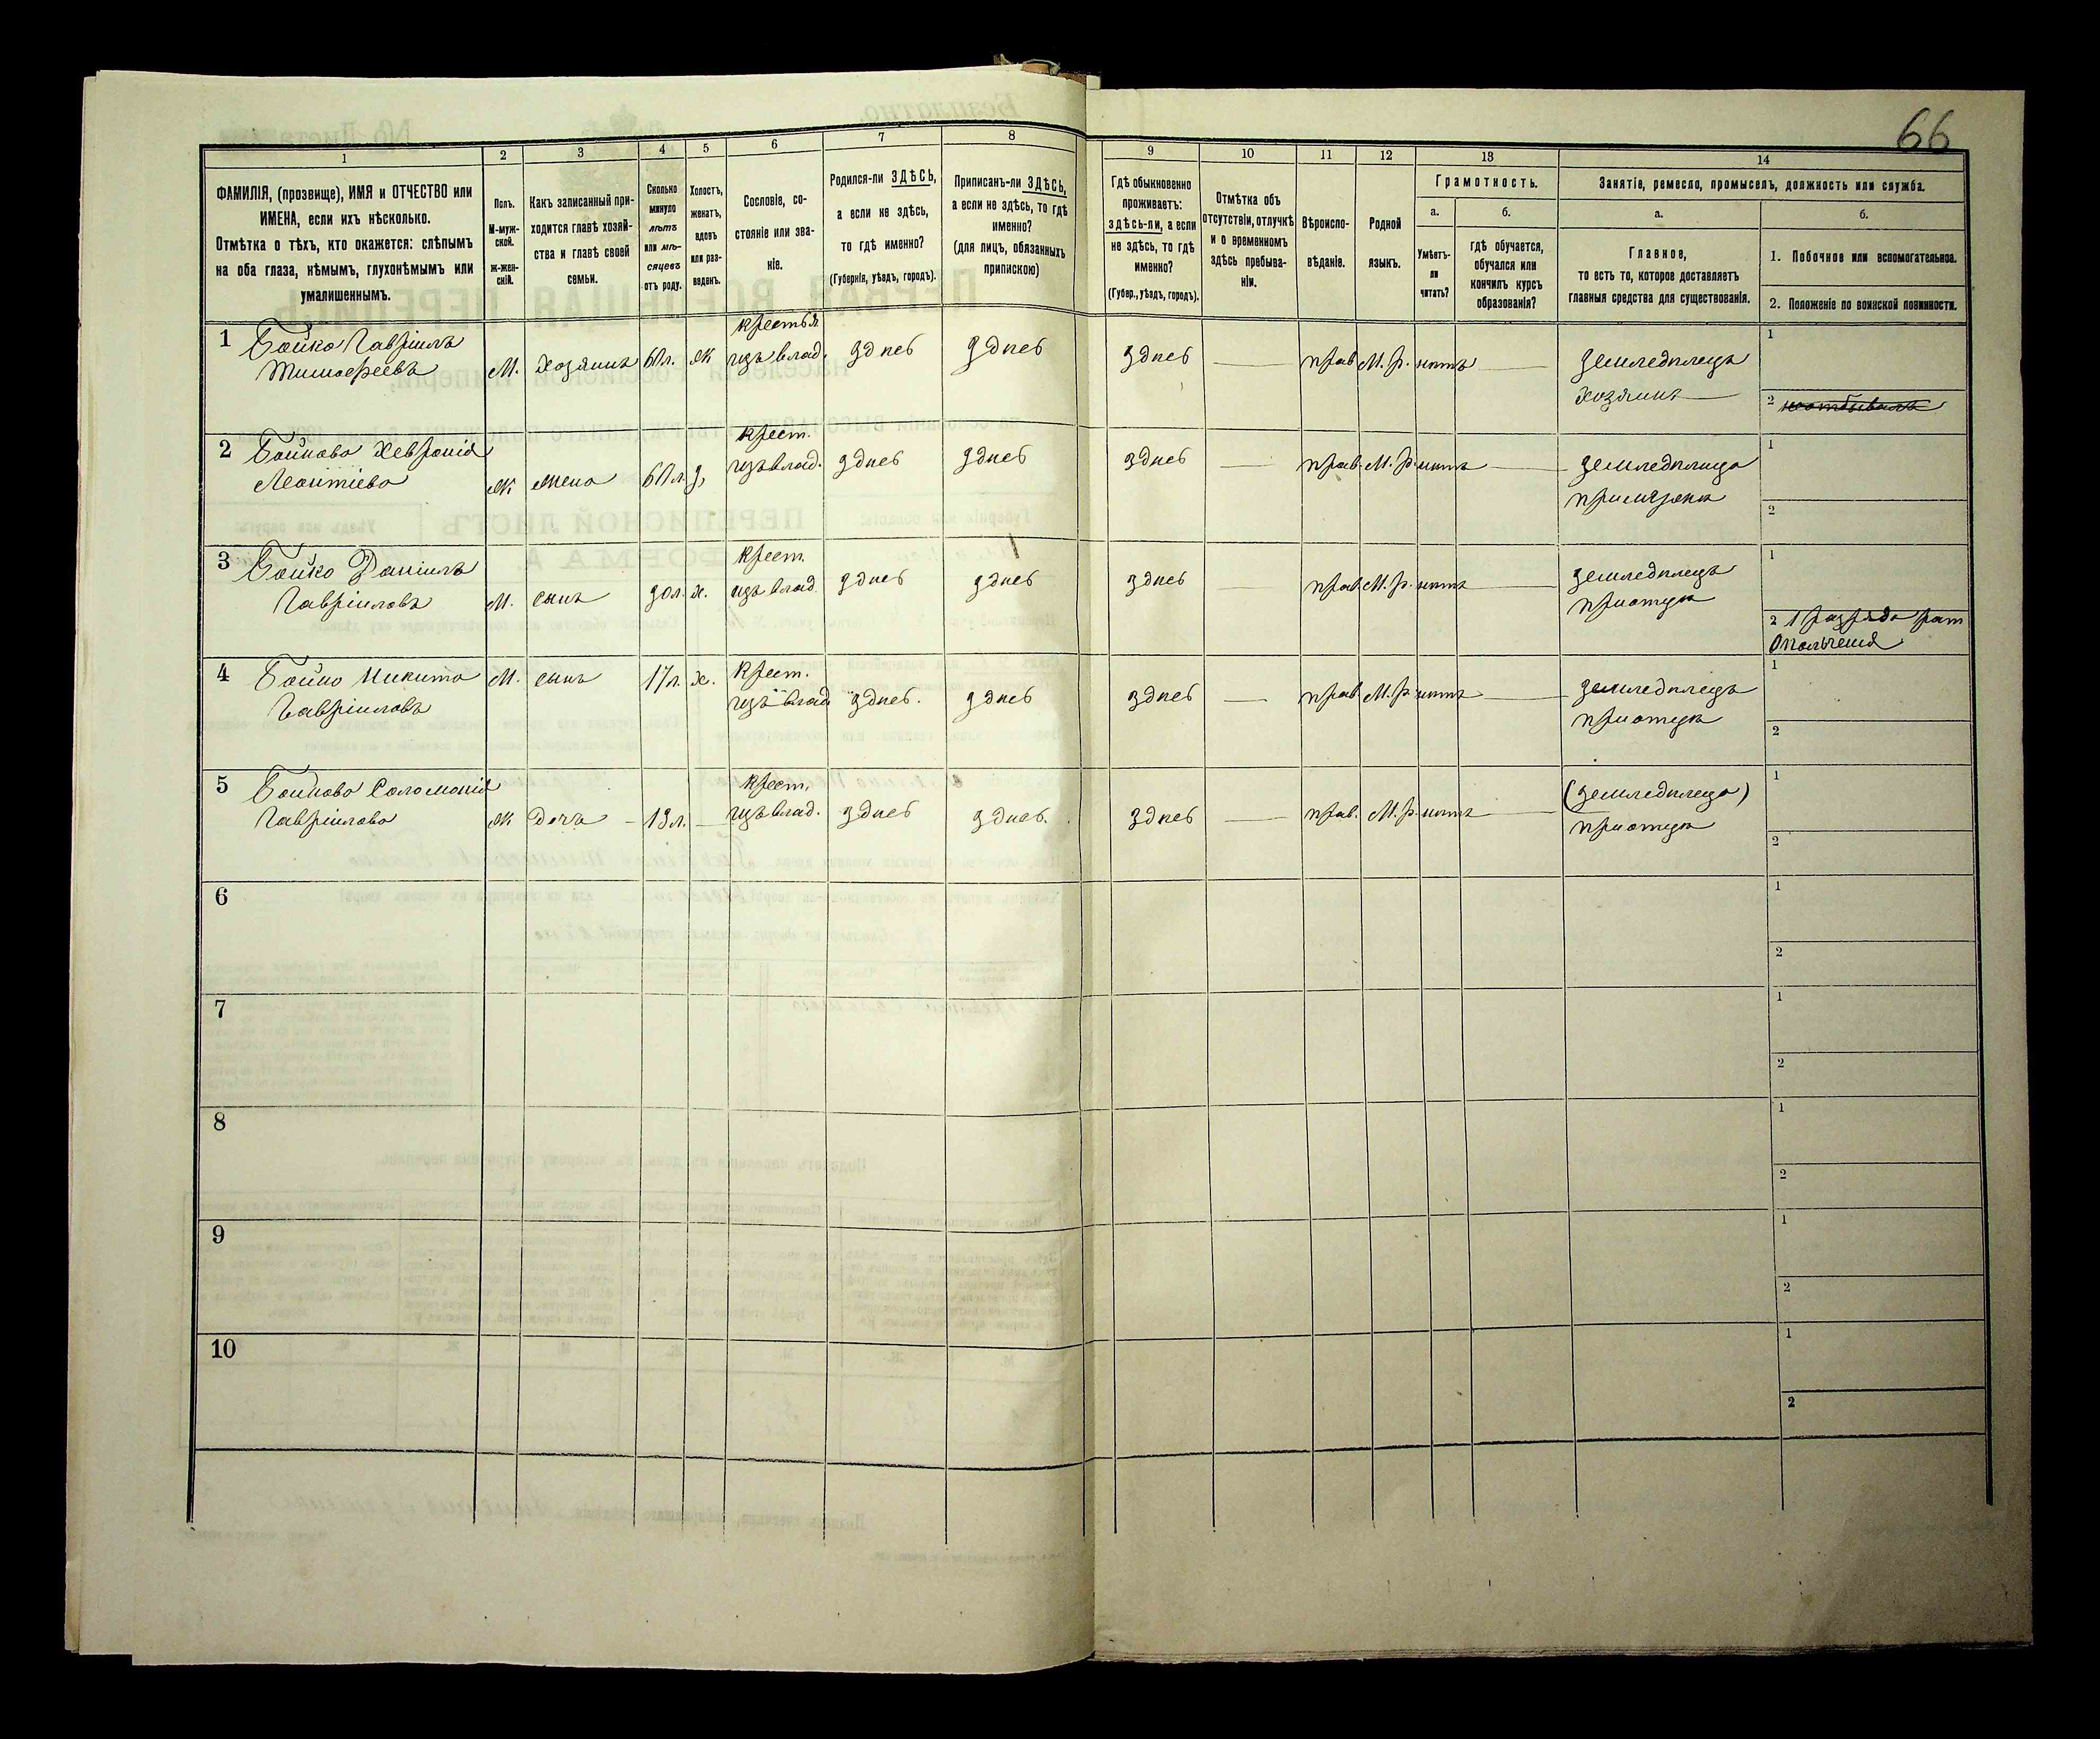 66
1 2 3 4 5 6 7 8 9 10 11 12 13 14
ФАМИЛІЯ, (прозвище), ИМЯ и ОТЧЕСТВО или
ИМЕНА, если ихъ нѣсколько.
Отмѣтка о тѣхъ, кто окажется: слѣпымъ
на оба глаза, нѣмымъ, глухонѣмымъ или
умалишеннымъ.
Полъ.
М-муж-
ской.
ж-жен-
скій.
Какъ записанный при-
ходится главѣ хозяй-
ства и главѣ своей
семьи.
Сколько
минуло
лѣтъ
или мѣ-
сяцевъ
отъ роду.
Холостъ,
женатъ,
вдовъ
или раз-
веденъ.
Сословіе, со-
стояніе или зва-
ніе.
Родился-ли ЗДѢСЬ,
а если не здѣсь,
то гдѣ именно?
(Губернія, уѣздъ, городъ).
Приписанъ-ли ЗДѢСЬ,
а если не здѣсь, то гдѣ
именно?
(для лицъ, обязанныхъ
припискою)
Гдѣ обыкновенно
проживаетъ:
здѣсь-ли, а если
не здѣсь, то гдѣ
именно?
(Губер., уѣздъ, городъ).
Отмѣтка объ
отсутствіи, отлучкѣ
и о временномъ
здѣсь пребыва-
ніи.
Вѣроиспо-
вѣданіе.
Родной
языкъ.
Грамотность.
а.
Умѣетъ-
ли
читать?
б.
гдѣ обучается,
обучался или
кончилъ курсъ
образованія?
Занятіе, ремесло, промыселъ, должность или служба.
а.
Главное,
то есть то, которое доставляетъ
главныя средства для существованія.
б.
1. Побочное или вспомогательное.
2. Положеніе по воинской повинности.
1 Бойко Гавріилъ
Тимофеевъ
М. хозяинъ 60 л. Ж
крестья.
изъ влад.
здѣсь здѣсь здѣсь — прав М. р. нѣтъ —
земледѣлецъ
хозяинъ
1
2 неотбывалъ
2 Бойково Хевронія
Леонтіева
Ж жена 60 л. з,
крест.
изъ влад.
здѣсь здѣсь здѣсь — прав. М. р. нѣтъ —
земледѣлица
примужѣ
1
2
3 Бойко Даніилъ
Гавріиловъ
М. сынъ 30 л. х.
крест.
изъ влад.
здѣсь здѣсь здѣсь — прав. М. р. нѣтъ —
земледѣлецъ
приотцѣ
1
2 1 разряда рат
Ополченія
4 Бойко Никита
Гавріиловъ
М. сынъ 17 л. х.
крест.
изъ влад
здѣсь. здѣсь здѣсь — прав М. р. нѣтъ —
земледѣлецъ
приотцѣ
1
2
5 Бойково Соломонія
Гавріилова
Ж Дочь — 13 л. —
крест.
изъ влад.
здѣсь здѣсь. здѣсь — прав. М. р. нѣтъ —
(земледѣлица)
приотцѣ
1
2
6
1
2
7
1
2
8
1
2
9
1
2
10
1
2